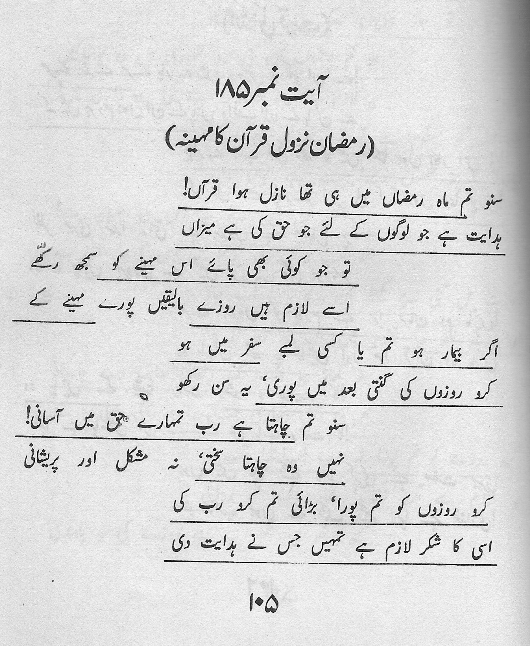 آیت نمبر ۱۸۵
(رمضان نزول قرآن کا مہینہ)
سنو تم ماہ رمضاں میں ہی تھا نازل ہوا قرآں!
ہدایت ہے جو لوگوں کے لئے جو حق کی ہے میزاں
تو جو کوئی بھی پائے اس مہینے کو سمجھ رکھے
اسے لازم ہیں روزے بالیقیں پورے مہینے کے
اگر بیمار ہو تم یا کسی لمبے سفر میں ہو
کرو روزوں کی گنتی بعد میں پوری، یہ سن رکھو
سنو تم چاہتا ہے رب تمہارے حق میں آسانی!
نہیں وہ چاہتا سختی، نہ مشکل اور پریشانی
کرو روزوں کو تم پورا، بڑائی تم کرو رب کی
اسی کا شکر لازم ہے تمہیں جس نے ہدایت دی
۱۰۵